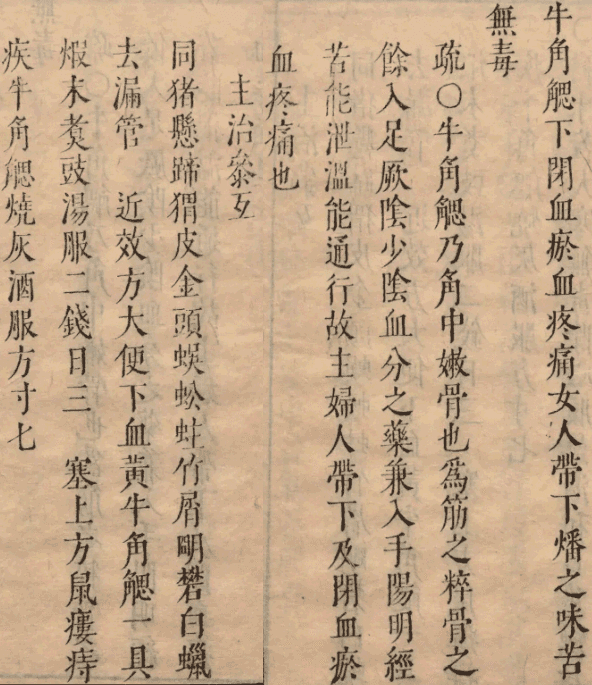 牛角䚡下閉血瘀血疼痛女人帶下燔之味苦
無毒
疏○牛角䚡乃角中嫩骨也爲筋之粹骨之
餘入足厥陰少陰血分之藥兼入手陽明經
苦能泄溫能通行故主婦人帶下及閉血瘀
血疼痛也
主治參互
同猪懸蹄猬皮金頭蜈蚣蛀竹屑明礬白蠟
去漏管　近效方大便下血黃牛角䚡一具
煆末煑豉湯服二錢日三　塞上方鼠瘻痔
疾牛角䚡燒灰酒服方寸七